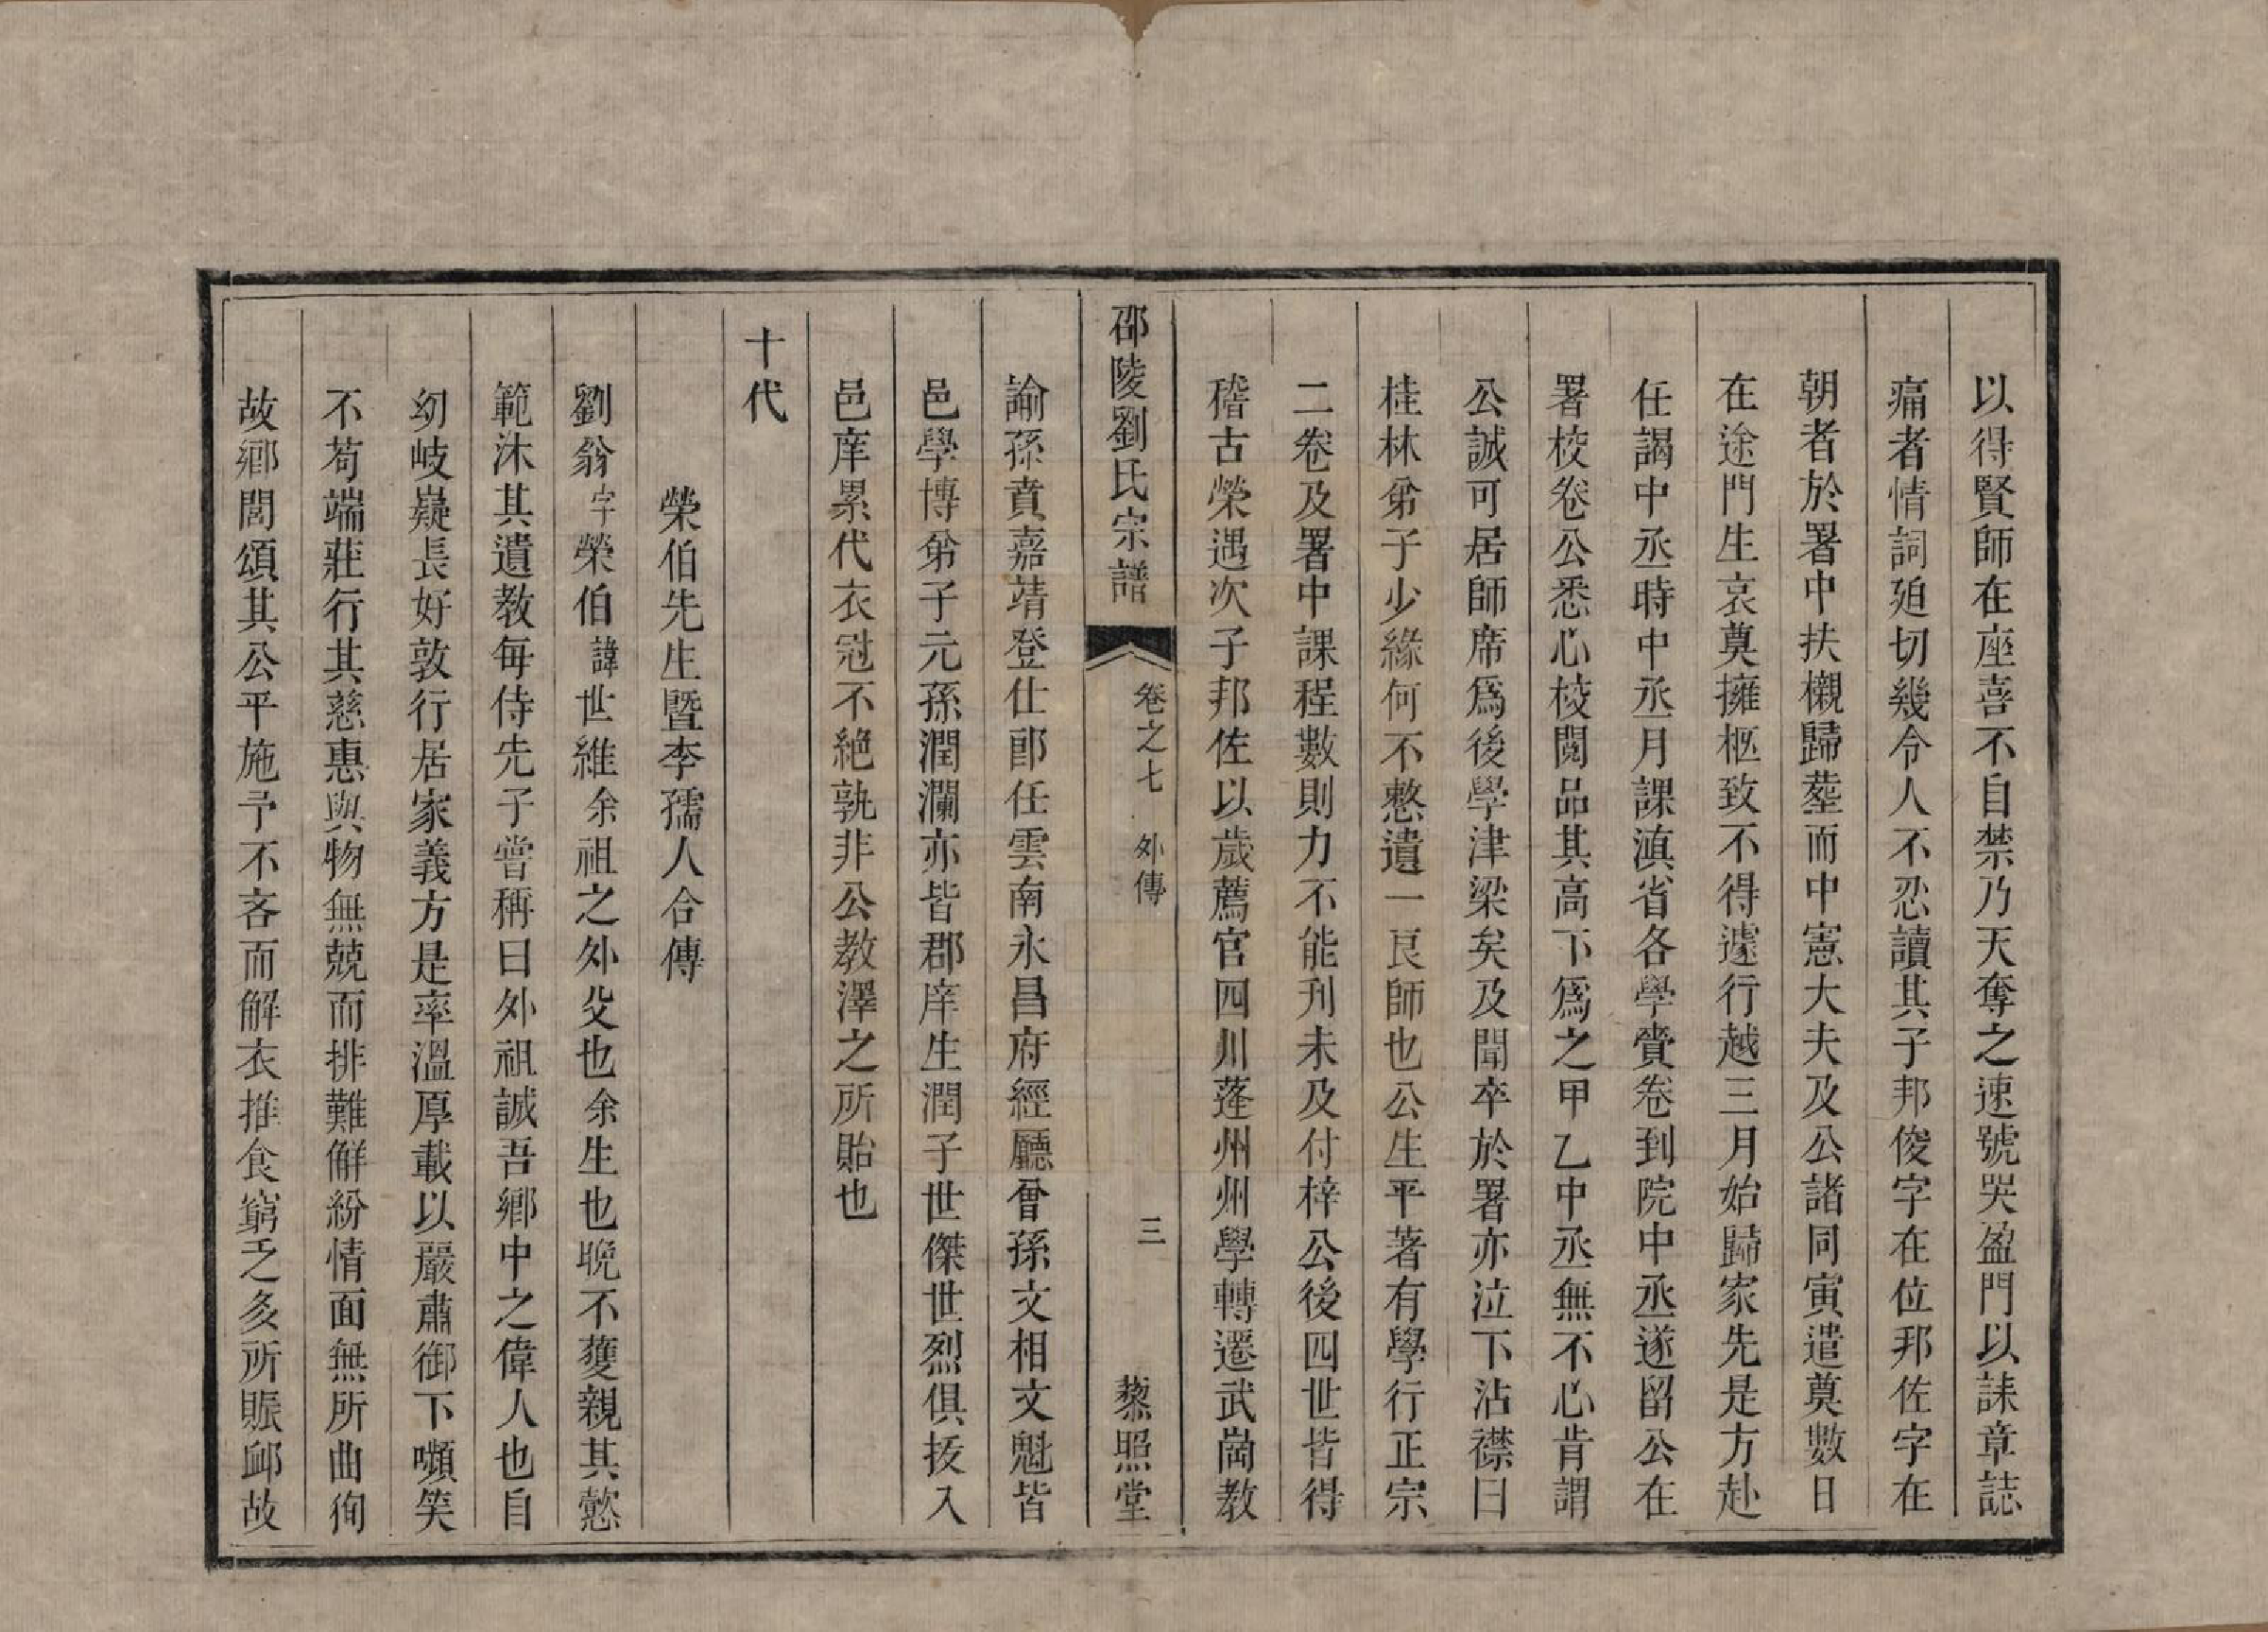 以得賢師在座喜不自禁乃天奪之速號哭盈門以誄章誌
痛者情詞廹切幾令人不忍讀其子邦俊字在位邦佐字在
朝者於署中扶櫬歸塟而中憲大夫及公諸同寅遣奠數日
在途門生哀奠擁柩致不得遽行越三月始歸家先是方赴
任謁中丞時中丞月課滇省各學賫卷到院中丞遂留公在
署校卷公悉心校閱品其高下爲之甲乙中丞無不心肯謂
公誠可居師席爲後學津梁矣及聞卒於署亦泣下沾襟曰
桂林弟子少緣何不憗遺一良師也公生平著有學行正宗
二卷及署中課程數則力不能刊未及付梓公後四世皆得
稽古榮遇次子邦佐以歲薦官四川蓬州州學轉遷武崗教
邵陵劉氏宗譜 卷之七 外傳 三 藜照堂
諭孫賁嘉靖登仕郎任雲南永昌府經廳曾孫文相文魁皆
邑學博弟子元孫潤瀾亦皆郡庠生潤子世傑世烈俱抜入
邑庠累代衣冠不絕孰非公教澤之所貽也
十代
榮伯先生暨李孺人合傳
劉翁字榮伯諱世維余祖之外父也余生也晚不獲親其懿
範沐其遺教每侍先子嘗稱曰外祖誠吾鄉中之偉人也自
幼岐嶷長好敦行居家義方是率溫厚載以嚴肅御下嚬笑
不苟端莊行其慈惠與物無競而排難觧紛情面無所曲徇
故鄉閭頌其公平施予不吝而解衣推食窮乏多所賑卹故